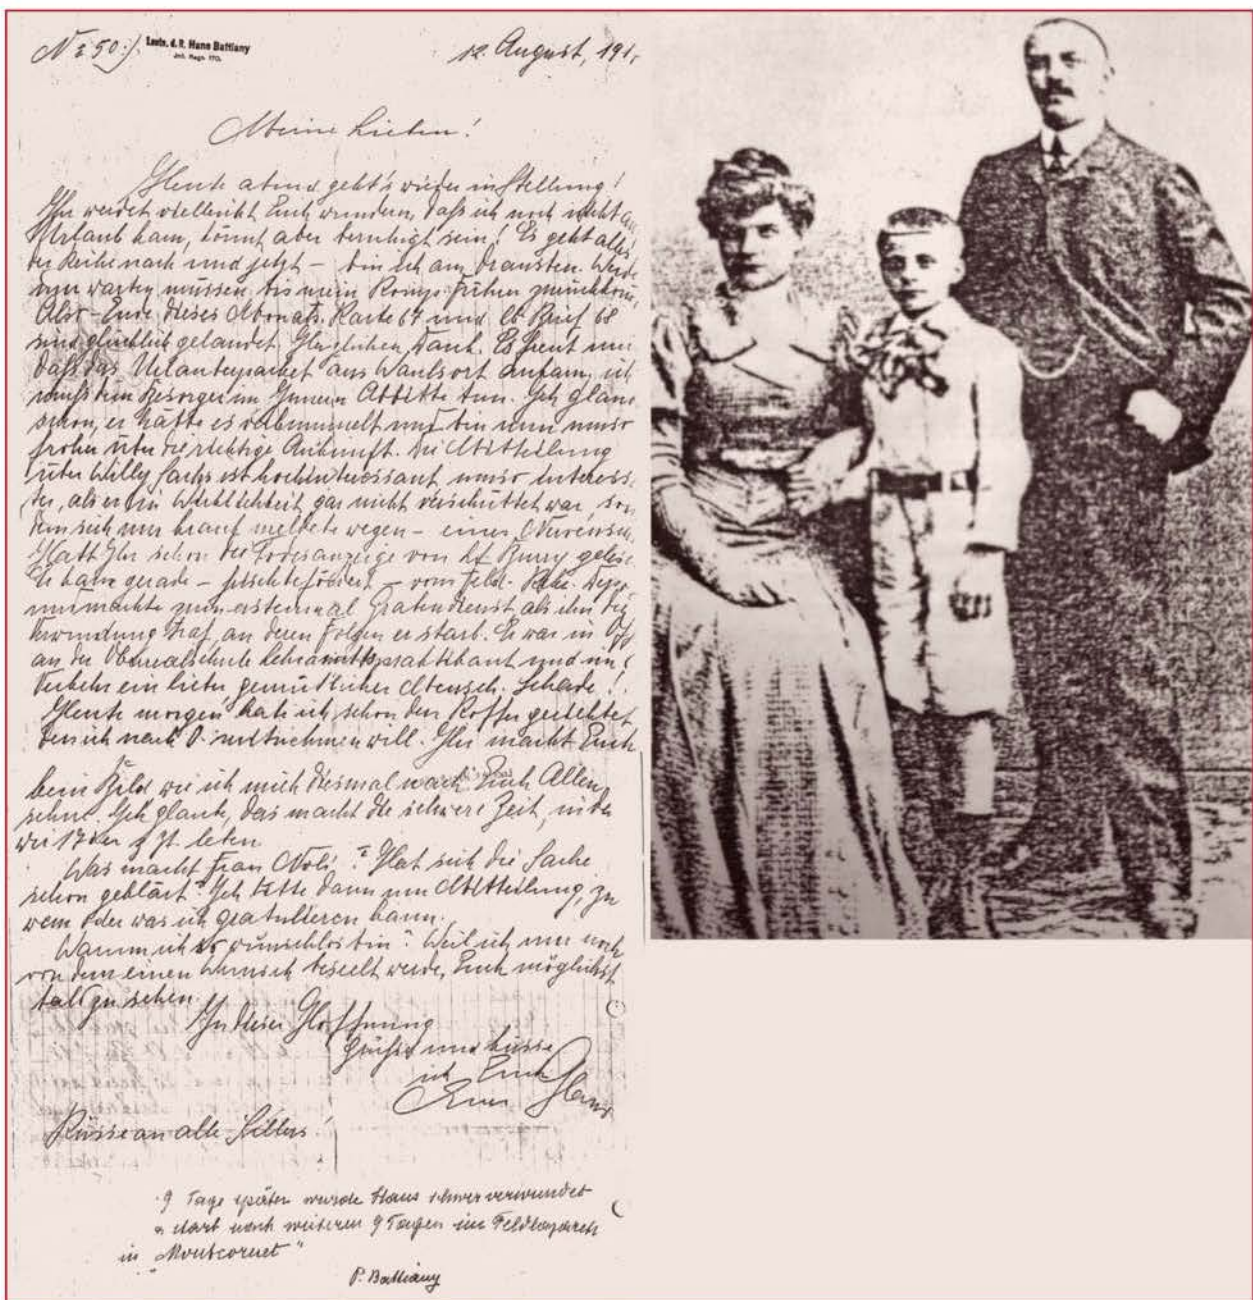 No 250.)
Leutn. d. R. Hans Battiany
Inf. Regt. 170.
12. August, 191
Meine Lieben!
Heute abend geht's wieder in Stellung!
Ihr werdet vielleicht Euch wundern, daß ich noch nicht in
Urlaub kam, könnt aber beruhigt sein! Es geht alles
der Reihe nach und jetzt – bin ich am dransten. Werde
nur warten müssen, bis mein Komp. Führer zurückkom
Also – Ende dieses Monats. Karte 67 und Brief 68
sind glücklich gelandet. Herzlichen Dank. Es freut mich
daß das Urlauberpacket aus ankam, ich
muß dem Besorger im Innern Abbitte tun. Ich glaube
schon, er hätte es verbummelt und bin nun umso
froher über die richtige Ankunft. Die Mitteilung
über Willy Sachs ist hochinteressant, umso interess
ter, als er in Wirklichkeit gar nicht verschüttet war, son
dern sich nur krank meldete wegen – einer
Habt Ihr schon die Todesanzeige von Lt. gelesen
Er kam gerade – frisch befördert – vom Feld. Rekr. Depot
und machte zum erstenmal Grabendienst, als ihn die
Verwundung traf, an deren Folgen er starb. Er war in
an der Oberrealschule Lehramtspraktikant und im
Verkehr ein lieber gemütlicher Mensch. Schade!
Heute morgen hab ich schon den Koffer gerichtet
den ich nach O. mitnehmen will. Ihr macht Euch
kein Bild wie ich mich diesmal nach Euch Allen
sehne. Ich glaube, das macht die schwere Zeit, in der
wir hier z. Zt. leben.
Was macht Frau ? Hat sich die Sache
schon geklärt? Ich bitte dann um Mitteilung, zu
wem oder was ich gratulieren kann.
Warum ich so wunschlos bin? Weil ich nur noch
von dem einen Wunsch beseelt werde, Euch möglichst
bald zu sehen.
In dieser Hoffnung
Grüße und küsse
ich Euch
Euer Hans
Küsse an alle
9 Tage später wurde Hans schwer verwundet
u. starb nach weiteren 9 Tagen im Feldlazarett
in „Montcornet"
P. Battiany